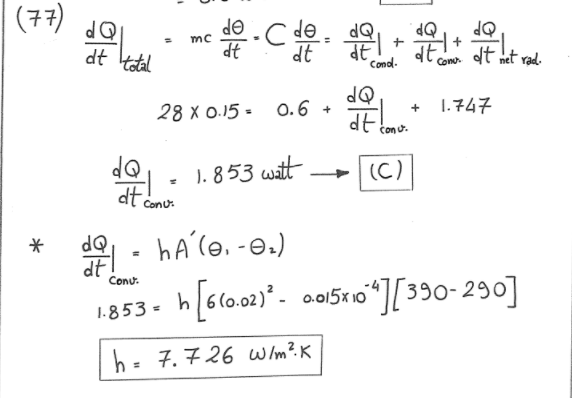 (77) dQ/dt|total = mc dθ/dt = C dθ/dt = dQ/dt|cond. + dQ/dt|conv. + dQ/dt|net rad.
28 x 0.15 = 0.6 + dQ/dt|conv. + 1.747
dQ/dt|conv. = 1.853 watt → (C)
* dQ/dt|conv. = hA'(θ₁ - θ₂)
1.853 = h[6(0.02)² - 0.015x10⁻⁴][390-290]
h = 7.726 W/m².K